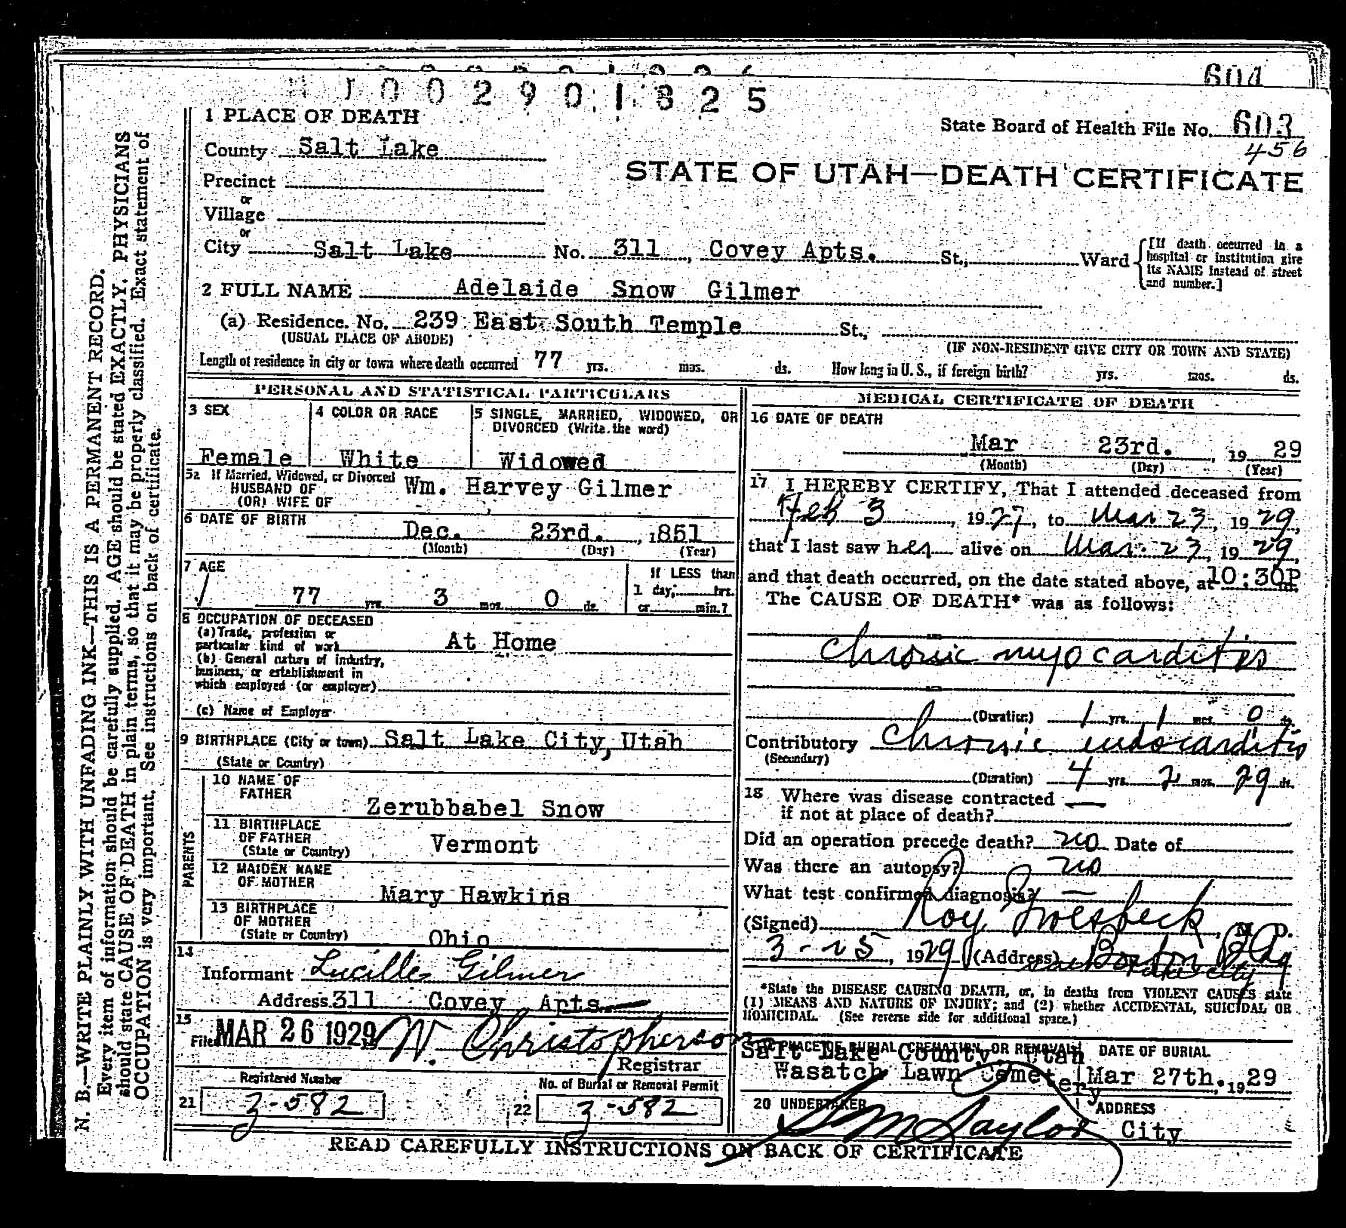 604
1002901825
1 PLACE OF DEATH
State Board of Health File No. 603
456
County Salt Lake
STATE OF UTAH—DEATH CERTIFICATE
Precinct
or
Village
or
City Salt Lake No. 311, Covey Apts. St., Ward [If death occurred in a hospital or institution give its NAME instead of street and number.]
2 FULL NAME Adelaide Snow Gilmer
(a) Residence. No. 239 East South Temple St.,
(USUAL PLACE OF ABODE) (IF NON-RESIDENT GIVE CITY OR TOWN AND STATE)
Length of residence in city or town where death occurred 77 yrs. mos. ds. How long in U. S., if foreign birth? yrs. mos. ds.
PERSONAL AND STATISTICAL PARTICULARS
3 SEX
Female
4 COLOR OR RACE
White
5 SINGLE, MARRIED, WIDOWED, OR
DIVORCED (Write the word)
Widowed
5a If Married, Widowed, or Divorced
HUSBAND OF
(OR) WIFE OF
Wm. Harvey Gilmer
6 DATE OF BIRTH
Dec. 23rd. , 1851
(Month) (Day) (Year)
7 AGE
77 yrs. 3 mos. 0 ds.
If LESS than
1 day, hrs.
or min.?
8 OCCUPATION OF DECEASED
(a) Trade, profession or
particular kind of work At Home
(b) General nature of industry,
business, or establishment in
which employed (or employer)
(c) Name of Employer
9 BIRTHPLACE (City or town) Salt Lake City, Utah
(State or Country)
PARENTS
10 NAME OF
FATHER
Zerubbabel Snow
11 BIRTHPLACE
OF FATHER
(State or Country)
Vermont
12 MAIDEN NAME
OF MOTHER
Mary Hawkins
13 BIRTHPLACE
OF MOTHER
(State or Country)
Ohio
14
Informant Lucille Gilmer
Address 311 Covey Apts
15
Filed MAR 26 1929 W. Christopherson
Registrar
Registered Number
21 3-582
No. of Burial or Removal Permit
22 3-582
MEDICAL CERTIFICATE OF DEATH
16 DATE OF DEATH
Mar 23rd. , 19 29
(Month) (Day) (Year)
17 I HEREBY CERTIFY, That I attended deceased from
Feb 3, 1927, to Mar 23, 1929,
that I last saw her alive on Mar. 23, 1929,
and that death occurred, on the date stated above, at 10:30P m.
The CAUSE OF DEATH* was as follows:
chronic myocarditis
(Duration) 1 yrs. 1 mos. 0 ds.
Contributory Chronic endocarditis
(Secondary)
(Duration) 4 yrs. 2 mos. 29 ds.
18 Where was disease contracted
if not at place of death?
Did an operation precede death? no Date of
Was there an autopsy? no
What test confirmed diagnosis? —
(Signed) Roy Groesbeck, M. D.
3-25, 1929 (Address) Boston Bldg
Salt Lake City
*State the DISEASE CAUSING DEATH, or, in deaths from VIOLENT CAUSES state
(1) MEANS AND NATURE OF INJURY; and (2) whether ACCIDENTAL, SUICIDAL OR
HOMICIDAL. (See reverse side for additional space.)
19 PLACE OF BURIAL, CREMATION, OR REMOVAL
Salt Lake County Utah
Wasatch Lawn Cemetery
DATE OF BURIAL
Mar 27th. , 1929
20 UNDERTAKER
S M Taylor
ADDRESS
City
READ CAREFULLY INSTRUCTIONS ON BACK OF CERTIFICATE
N. B.—WRITE PLAINLY WITH UNFADING INK—THIS IS A PERMANENT RECORD.
Every item of information should be carefully supplied. AGE should be stated EXACTLY. PHYSICIANS
should state CAUSE OF DEATH in plain terms, so that it may be properly classified. Exact statement of
OCCUPATION is very important. See instructions on back of certificate.